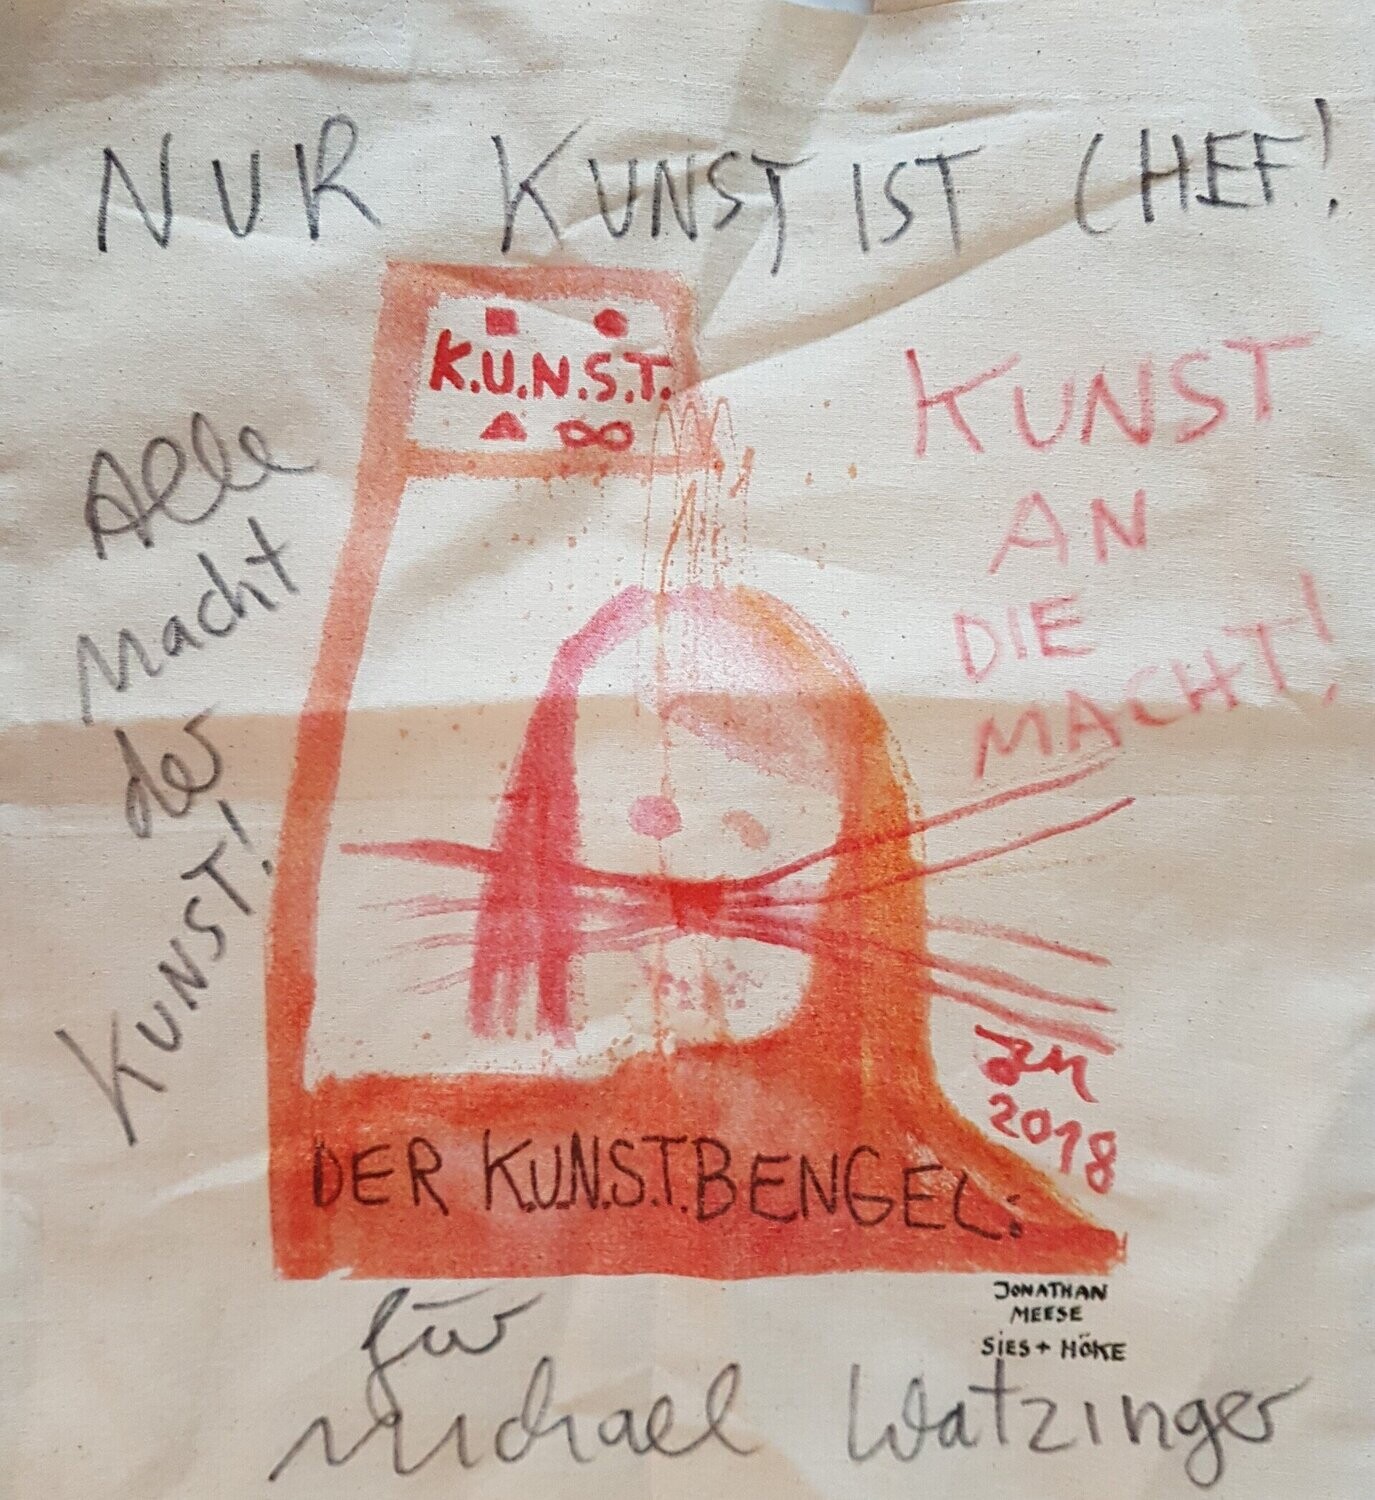 NUR KUNST IST CHEF!
K.U.N.S.T.
KUNST
AN
DIE
MACHT!
Alle
Macht
der
KUNST!
JM
2018
DER K.U.N.S.T.BENGEL:
JONATHAN
MEESE
SIES + HÖKE
für
Michael Watzinger